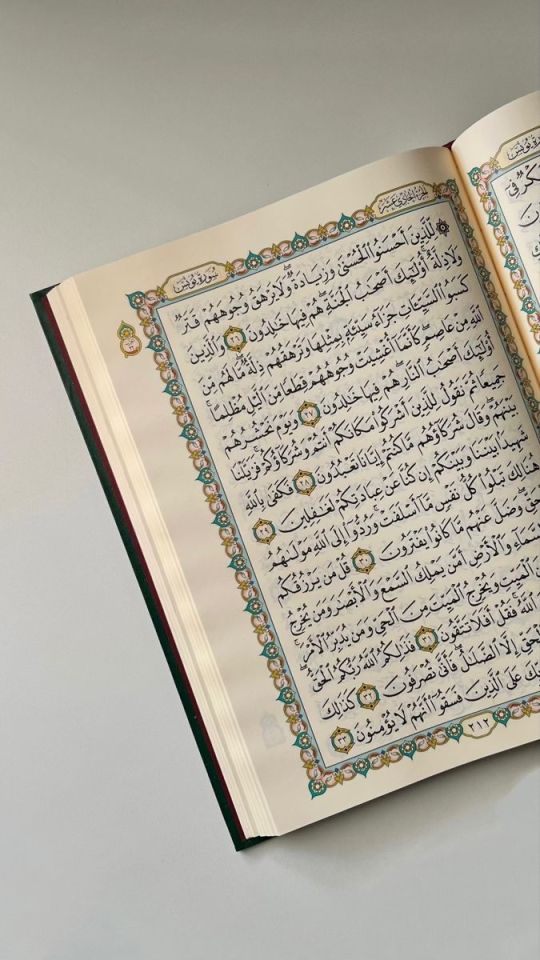 الجزء الحادي عشر
سورة يونس
۞ لِّلَّذِينَ أَحْسَنُوا۟ ٱلْحُسْنَىٰ وَزِيَادَةٌ ۖ وَلَا يَرْهَقُ وُجُوهَهُمْ قَتَرٌ
وَلَا ذِلَّةٌ ۚ أُو۟لَـٰٓئِكَ أَصْحَـٰبُ ٱلْجَنَّةِ ۖ هُمْ فِيهَا خَـٰلِدُونَ ٢٦ وَٱلَّذِينَ
كَسَبُوا۟ ٱلسَّيِّـَٔاتِ جَزَآءُ سَيِّئَةٍۭ بِمِثْلِهَا وَتَرْهَقُهُمْ ذِلَّةٌ ۖ مَّا لَهُم مِّنَ
ٱللَّهِ مِنْ عَاصِمٍ ۖ كَأَنَّمَآ أُغْشِيَتْ وُجُوهُهُمْ قِطَعًا مِّنَ ٱلَّيْلِ مُظْلِمًا ۚ
أُو۟لَـٰٓئِكَ أَصْحَـٰبُ ٱلنَّارِ ۖ هُمْ فِيهَا خَـٰلِدُونَ ٢٧ وَيَوْمَ نَحْشُرُهُمْ
جَمِيعًا ثُمَّ نَقُولُ لِلَّذِينَ أَشْرَكُوا۟ مَكَانَكُمْ أَنتُمْ وَشُرَكَآؤُكُمْ ۚ فَزَيَّلْنَا
بَيْنَهُمْ ۖ وَقَالَ شُرَكَآؤُهُم مَّا كُنتُمْ إِيَّانَا تَعْبُدُونَ ٢٨ فَكَفَىٰ بِٱللَّهِ
شَهِيدًۢا بَيْنَنَا وَبَيْنَكُمْ إِن كُنَّا عَنْ عِبَادَتِكُمْ لَغَـٰفِلِينَ ٢٩
هُنَالِكَ تَبْلُوا۟ كُلُّ نَفْسٍ مَّآ أَسْلَفَتْ ۚ وَرُدُّوٓا۟ إِلَى ٱللَّهِ مَوْلَىٰهُمُ
ٱلْحَقِّ ۖ وَضَلَّ عَنْهُم مَّا كَانُوا۟ يَفْتَرُونَ ٣٠ قُلْ مَن يَرْزُقُكُم
ٱلسَّمَآءِ وَٱلْأَرْضِ أَمَّن يَمْلِكُ ٱلسَّمْعَ وَٱلْأَبْصَـٰرَ وَمَن يُخْرِجُ
مِنَ ٱلْمَيِّتِ وَيُخْرِجُ ٱلْمَيِّتَ مِنَ ٱلْحَىِّ وَمَن يُدَبِّرُ ٱلْأَمْرَ ۚ
ٱللَّهُ ۚ فَقُلْ أَفَلَا تَتَّقُونَ ٣١ فَذَٰلِكُمُ ٱللَّهُ رَبُّكُمُ ٱلْحَقُّ ۖ
ٱلْحَقِّ إِلَّا ٱلضَّلَـٰلُ ۖ فَأَنَّىٰ تُصْرَفُونَ ٣٢ كَذَٰلِكَ
عَلَى ٱلَّذِينَ فَسَقُوٓا۟ أَنَّهُمْ لَا يُؤْمِنُونَ ٣٣
٢١٢